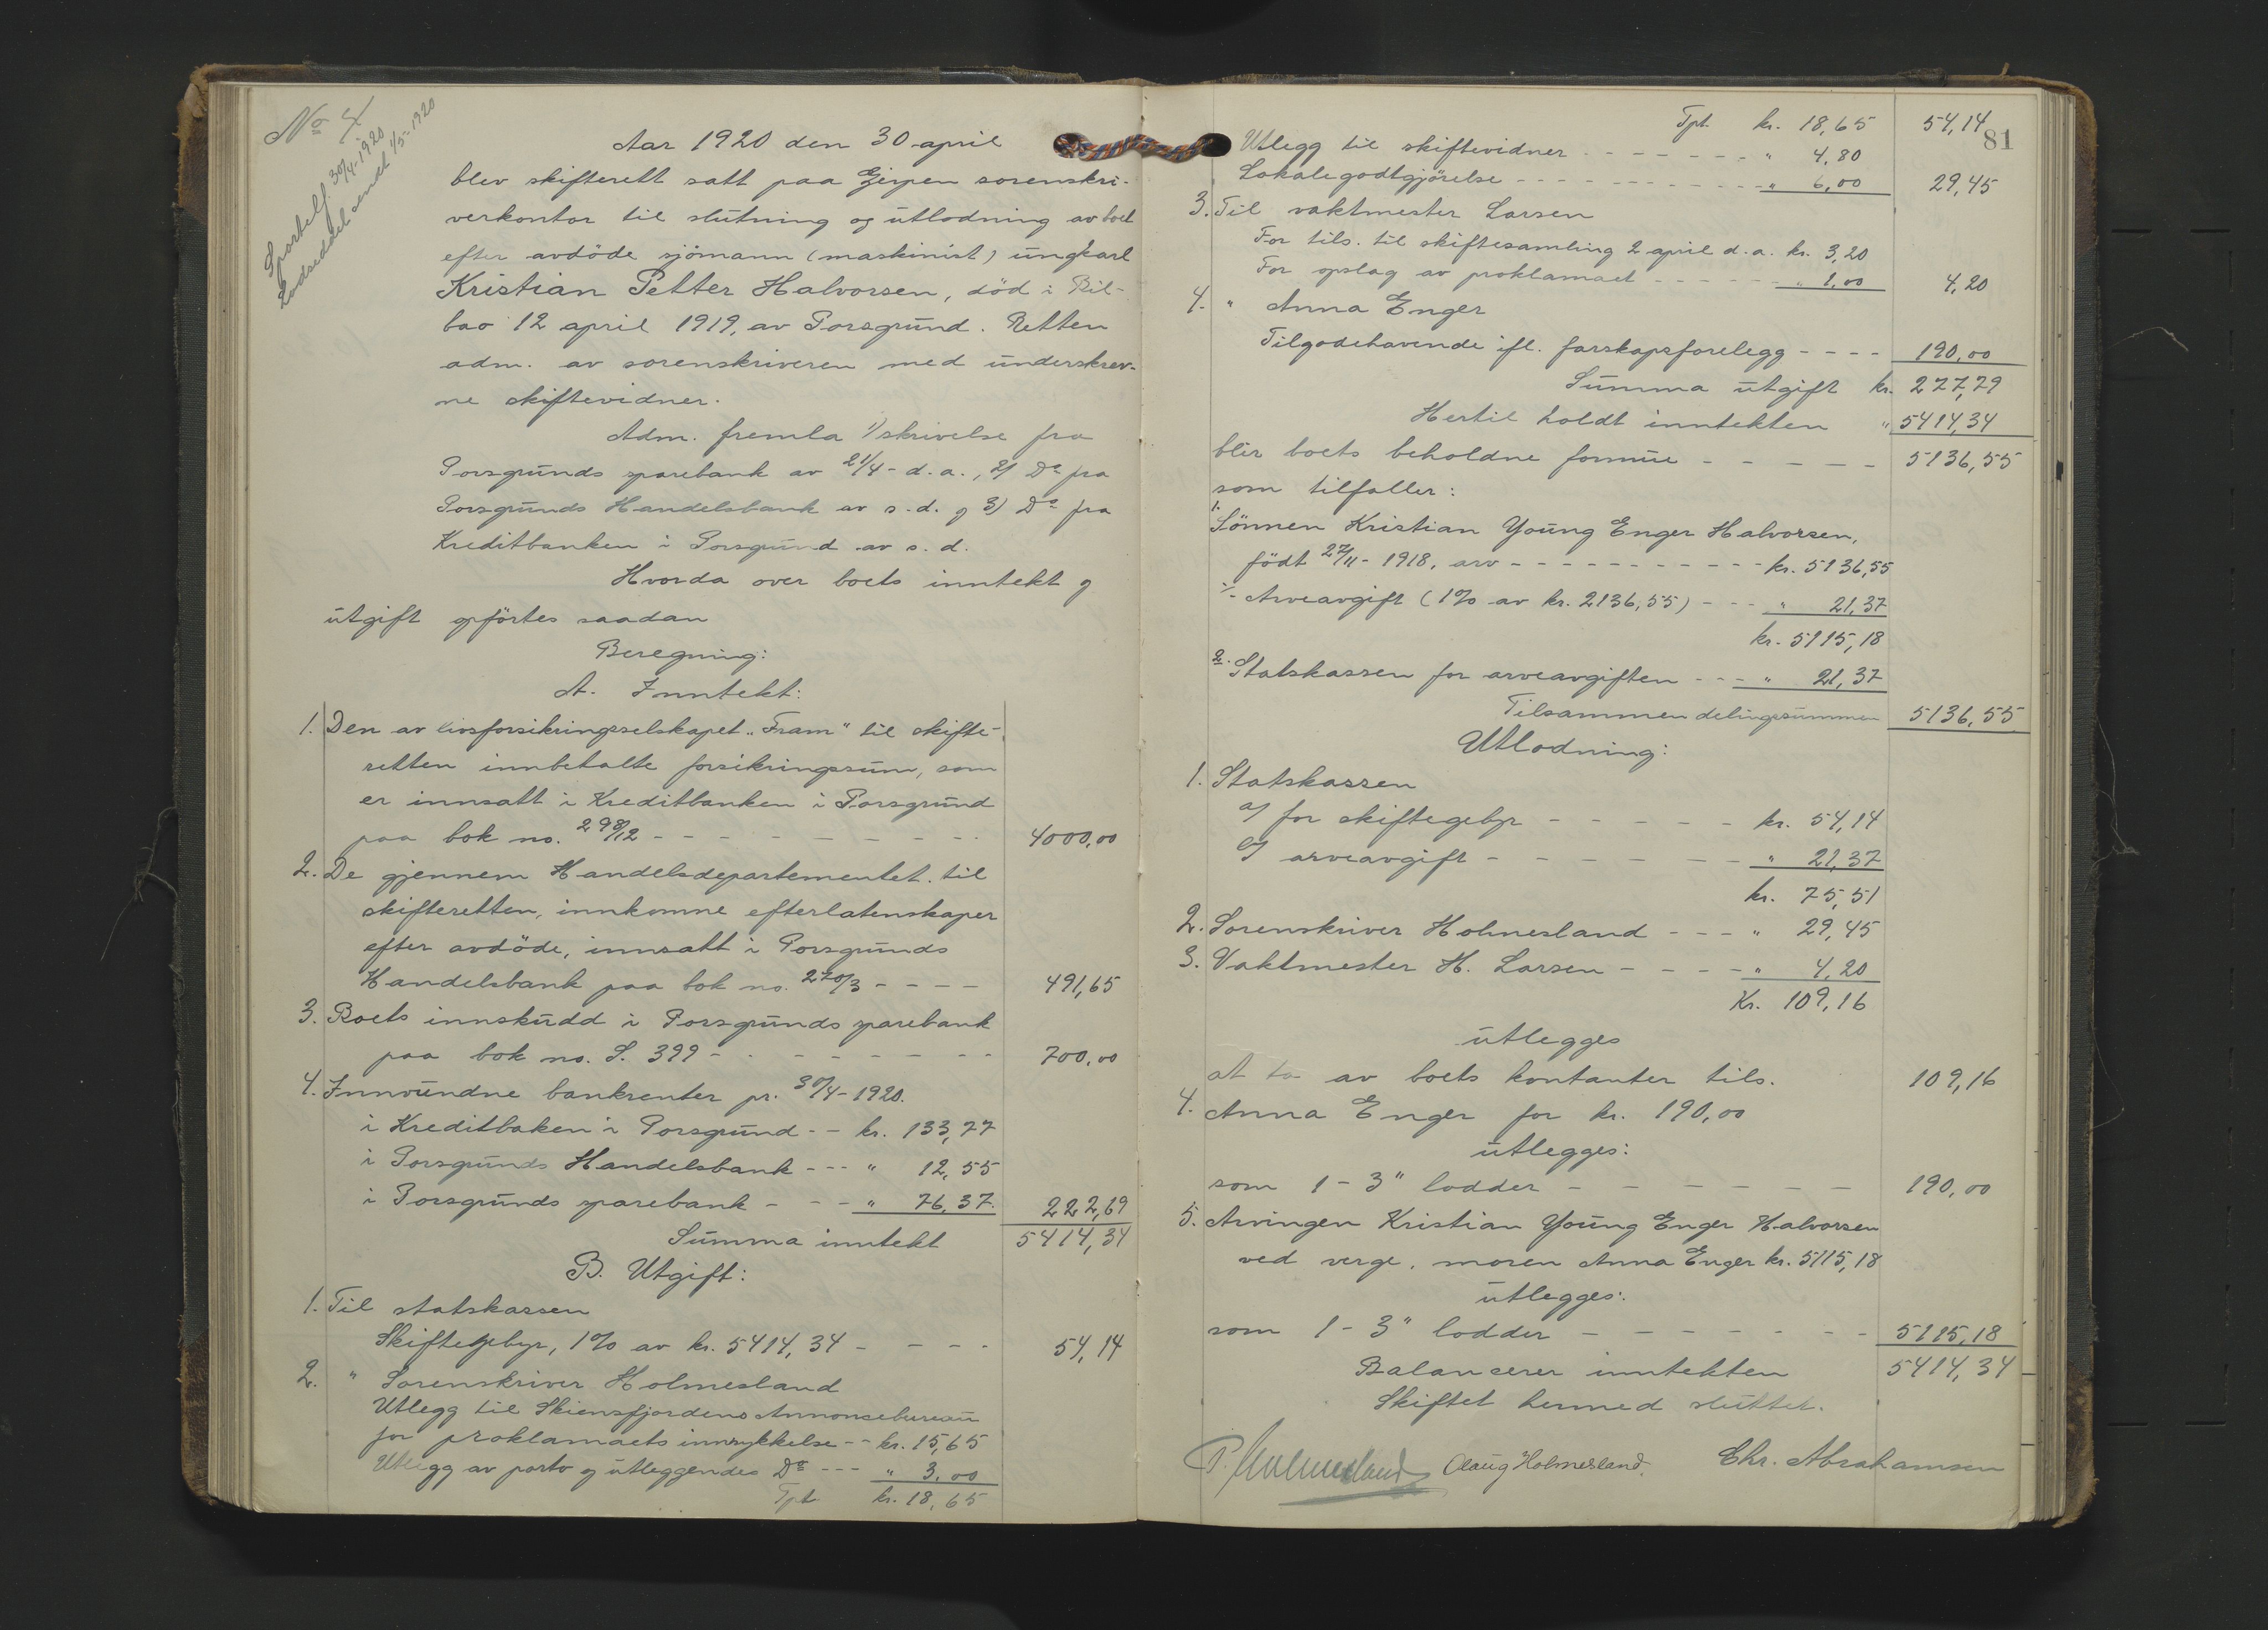 No 4
Sportelf. 30/4-1920
Lodseddel sendt 1/5-1920
Aar 1920 den 30 april
blev skifterett satt paa Gjerpen sorenskri-
verkontor til slutning og utlodning av boet
efter avdöde sjömann (maskinist) ungkarl
Kristian Petter Halvorsen, död i Bil-
bao 12 april 1919, av Porsgrund. Retten
adm. av sorenskriveren med underskrev-
ne skiftevidner.
Adm. fremla 1/ skrivelse fra
Porsgrunds sparebank av 21/4- d.a., 2/ Do fra
Porsgrunds Handelsbank av s.d. og 3) Do fra
Kreditbanken i Porsgrund av s.d.
Hvorda over boets inntekt og
utgift opförtes saadan
Beregning:
A. Inntekt:
1. Den av livsforsikringsselskapet "Fram" til skifte-
retten innbetalte forsikringssum, som
er innsatt i Kreditbanken i Porsgrund
paa bok no. 298/12 - - - - - - - - - 4000,00
2. De gjennem Handelsdepartementet til
skifteretten, innkomne efterlatenskaper
efter avdöde, innsatt i Porsgrunds
Handelsbank paa bok no. 270/3 - - - - 491,65
3. Boets innskudd i Porsgrunds sparebank
paa bok no. S. 399 - - - - - - - - 700,00
4. Innvundne bankrenter pr. 30/4-1920.
i Kreditbaken i Porsgrund - - kr. 133,77
i Porsgrunds Handelsbank - - - " 12,55
i Porsgrunds sparebank - - - " 76,37. 222,69
Summa inntekt 5414,34
B. Utgift:
1. Til statskassen
Skiftegebyr, 1% av kr. 5414,34 - - - - 54,14
2. " Sorenskriver Holmesland
Utlegg til Skiensfjordens Annoncebureau
for proklamaets innrykkelse - - kr. 15,65
Utlegg av porto og utleggendes Do - - - " 3,00
Tpt. kr. 18,65
81
Tpt. kr. 18,65 54,14
Utlegg til skiftevidner - - - - - - - - " 4,80
Lokalegodtgjörelse - - - - - - - - - - - " 6,00 29,45
3. Til vaktmester Larsen
For tils. til skiftesamling 2 april d.a. kr. 3,20
For opslag av proklamaet - - - - - - " 1,00 4,20
4. " Anna Enger
Tilgodehavende ifl. farskapsforelegg - - - - 190,00
Summa utgift kr. 277,79
Hertil holdt inntekten " 5414,34
blir boets beholdne formue - - - - - 5136,55
som tilfaller:
1. Sönnen Kristian Young Enger Halvorsen,
födt 27/11-1918, arv - - - - - - - - - - - kr. 5136,55
÷ Arveavgift (1% av kr. 2136,55) - - - " 21,37
kr. 5115,18
2. Statskassen for arveavgiften - - - " 21,37
Tilsammen delingssummen 5136,55
Utlodning:
1. Statskassen
a/ for skiftegebyr - - - - - kr. 54,14
b/ arveavgift - - - - - - - " 21,37
kr. 75,51
2. Sorenskriver Holmesland - - - " 29,45
3. Vaktmester H. Larsen - - - - " 4,20
Kr. 109,16
utlegges
at ta av boets kontanter tils. 109,16
4. Anna Enger for kr. 190,00
utlegges:
som 1-3" lodder - - - - - - - 190,00
5. Arvingen Kristian Young Enger Halvorsen
ved verge, moren Anna Enger kr. 5115,18
utlegges:
som 1-3" lodder - - - - - - - 5115,18
Balancerer inntekten 5414,34
Skiftet hermed sluttet.
P. Holmesland Olaug Holmesland. Chr. Abrahamsen